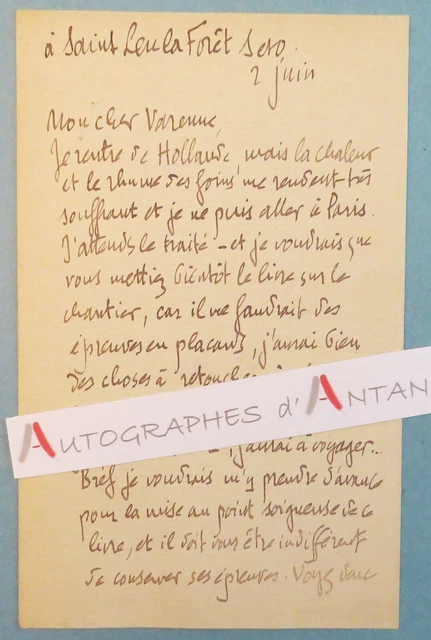 à Saint Leu la Forêt Seto.
2 juin
Mon cher Varenne,
Je rentre de Hollande, mais la chaleur
et le rhume des foins me rendent très
souffrant et je ne puis aller à Paris.
J'attends le traité - et je voudrais que
vous mettiez bientôt le livre sur le
chantier, car il me faudrait des
épreuves en placards, j'aurai bien
des choses à retoucher
AUTOGRAPHES d'ANTAN
j'aurai à voyager...
Bref je voudrais m'y prendre d'avance
pour la mise au point soigneuse de ce
livre, et il doit vous être indifférent
de conserver ses épreuves. Voyez donc